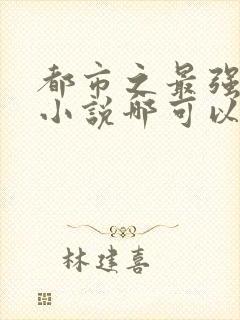 都市之最强
小说哪可以
林建喜